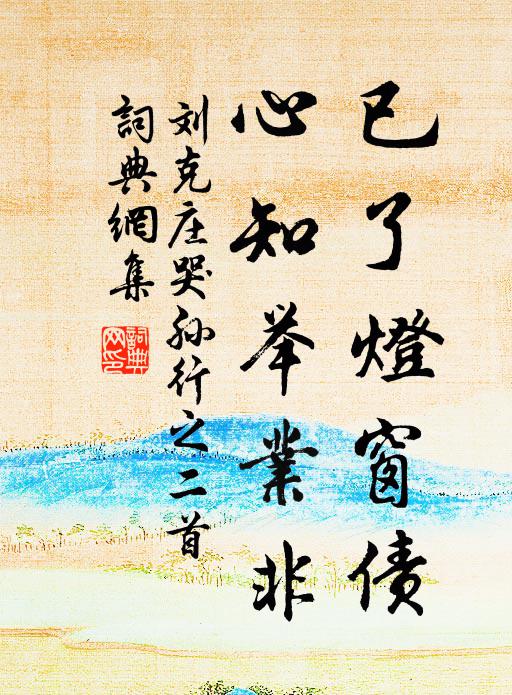 已了燈窗债
心知举業非
刘克庄哭孙行之二首
詞典網集
詞典網印